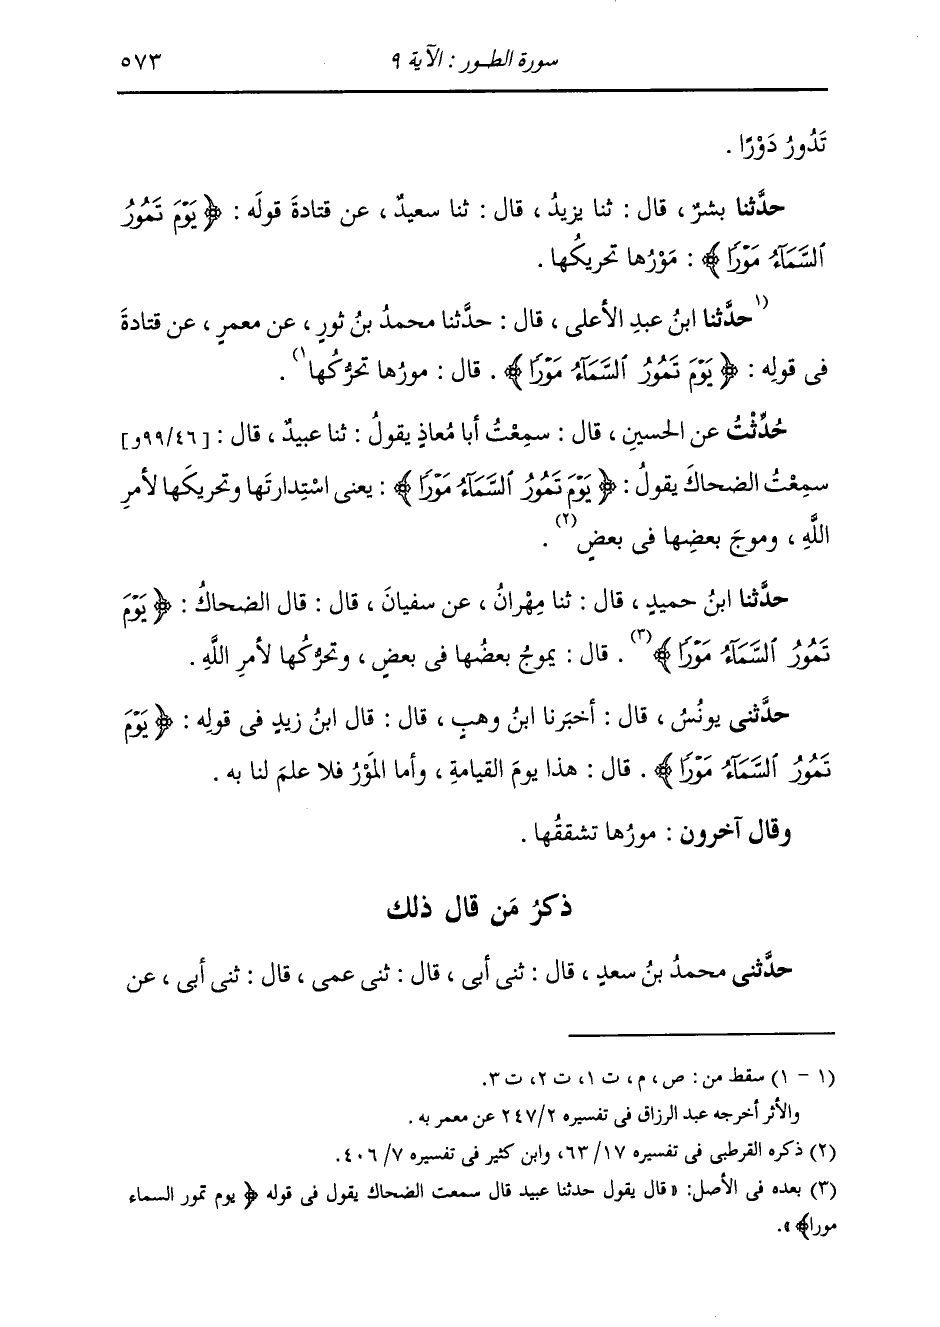 سورة الطور : الآية ٩ ٥٧٣
تَدُورُ دَوْرًا .
حدَّثنا بشرٌ ، قال : ثنا يزيدُ ، قال : ثنا سعيدٌ ، عن قتادةَ قولَه : ﴿ يَوْمَ تَمُورُ
ٱلسَّمَآءُ مَوْرًا ﴾ : مَوْرُها تحريكُها .
(١)حدَّثنا ابنُ عبدِ الأعلى ، قال : حدَّثنا محمدُ بنُ ثورٍ ، عن معمرٍ ، عن قتادةَ
فى قولِه : ﴿ يَوْمَ تَمُورُ ٱلسَّمَآءُ مَوْرًا ﴾ . قال : مورُها تحرُّكُها(١) .
حُدِّثْتُ عن الحسينِ ، قال : سمِعْتُ أبا مُعاذٍ يقولُ : ثنا عبيدٌ ، قال : [٩٩/٤٦و]
سمِعْتُ الضحاكَ يقولُ : ﴿ يَوْمَ تَمُورُ ٱلسَّمَآءُ مَوْرًا ﴾ : يعنى اسْتِدارتَها وتحريكَها لأمرِ
اللَّهِ ، وموجَ بعضِها فى بعضٍ(٢) .
حدَّثنا ابنُ حميدٍ ، قال : ثنا مِهْرانُ ، عن سفيانَ ، قال : قال الضحاكُ : ﴿ يَوْمَ
تَمُورُ ٱلسَّمَآءُ مَوْرًا ﴾(٣) . قال : يموجُ بعضُها فى بعضٍ ، وتحرُّكُها لأمرِ اللَّهِ .
حدَّثنى يونُسُ ، قال : أخبَرنا ابنُ وهبٍ ، قال : قال ابنُ زيدٍ فى قولِه : ﴿ يَوْمَ
تَمُورُ ٱلسَّمَآءُ مَوْرًا ﴾ . قال : هذا يومَ القيامةِ ، وأما المَوْرُ فلا علمَ لنا به .
وقال آخرون : مورُها تشققُها .
ذكرُ مَن قال ذلك
حدَّثنى محمدُ بنُ سعدٍ ، قال : ثنى أبى ، قال : ثنى عمى ، قال : ثنى أبى ، عن
(١ - ١) سقط من : ص ، م ، ت ١، ت ٢، ت ٣.
والأثر أخرجه عبد الرزاق فى تفسيره ٢٤٧/٢ عن معمر به .
(٢) ذكره القرطبى فى تفسيره ٦٣/١٧، وابن كثير فى تفسيره ٤٠٦/٧.
(٣) بعده فى الأصل: « قال يقول حدثنا عبيد قال سمعت الضحاك يقول فى قوله ﴿ يوم تمور السماء
مورا﴾ ».